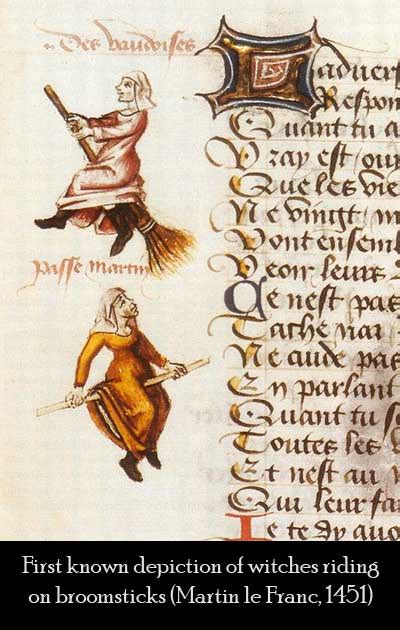 Des vaudoises
passe martin
Ladver
Respon
Quant tu a
Vray est ouy
Que les vie
Ne vingt m
Vont ensembl
Veoir leurs
Ce nest pas
Ne cuide pas
En parlant
Quant tu
Toutes les
Et nest au
Qui leur fa
Ie te dy auo
First known depiction of witches riding
on broomsticks (Martin le Franc, 1451)